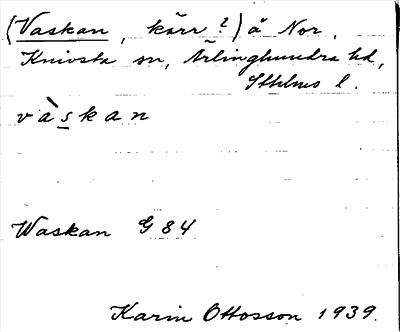 (Vaskan, kärr?) å Nor,
Knivsta sn, Ärlinghundra hd,
Sthlms l.
vàskan
Waskan G 84
Karin Ottosson 1939.